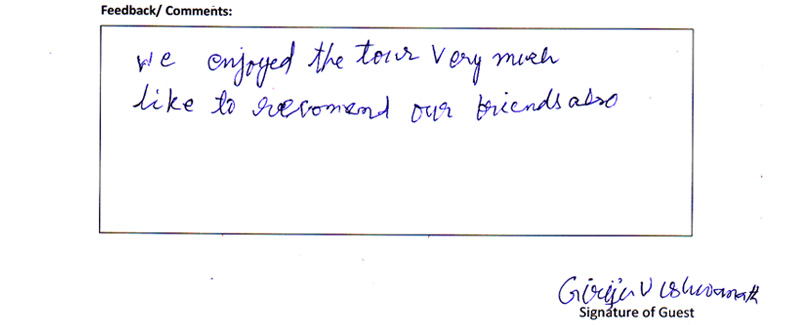 Feedback/ Comments:
We enjoyed the tour very much
like to recomend our friends also
Girija Vishwanath
Signature of Guest